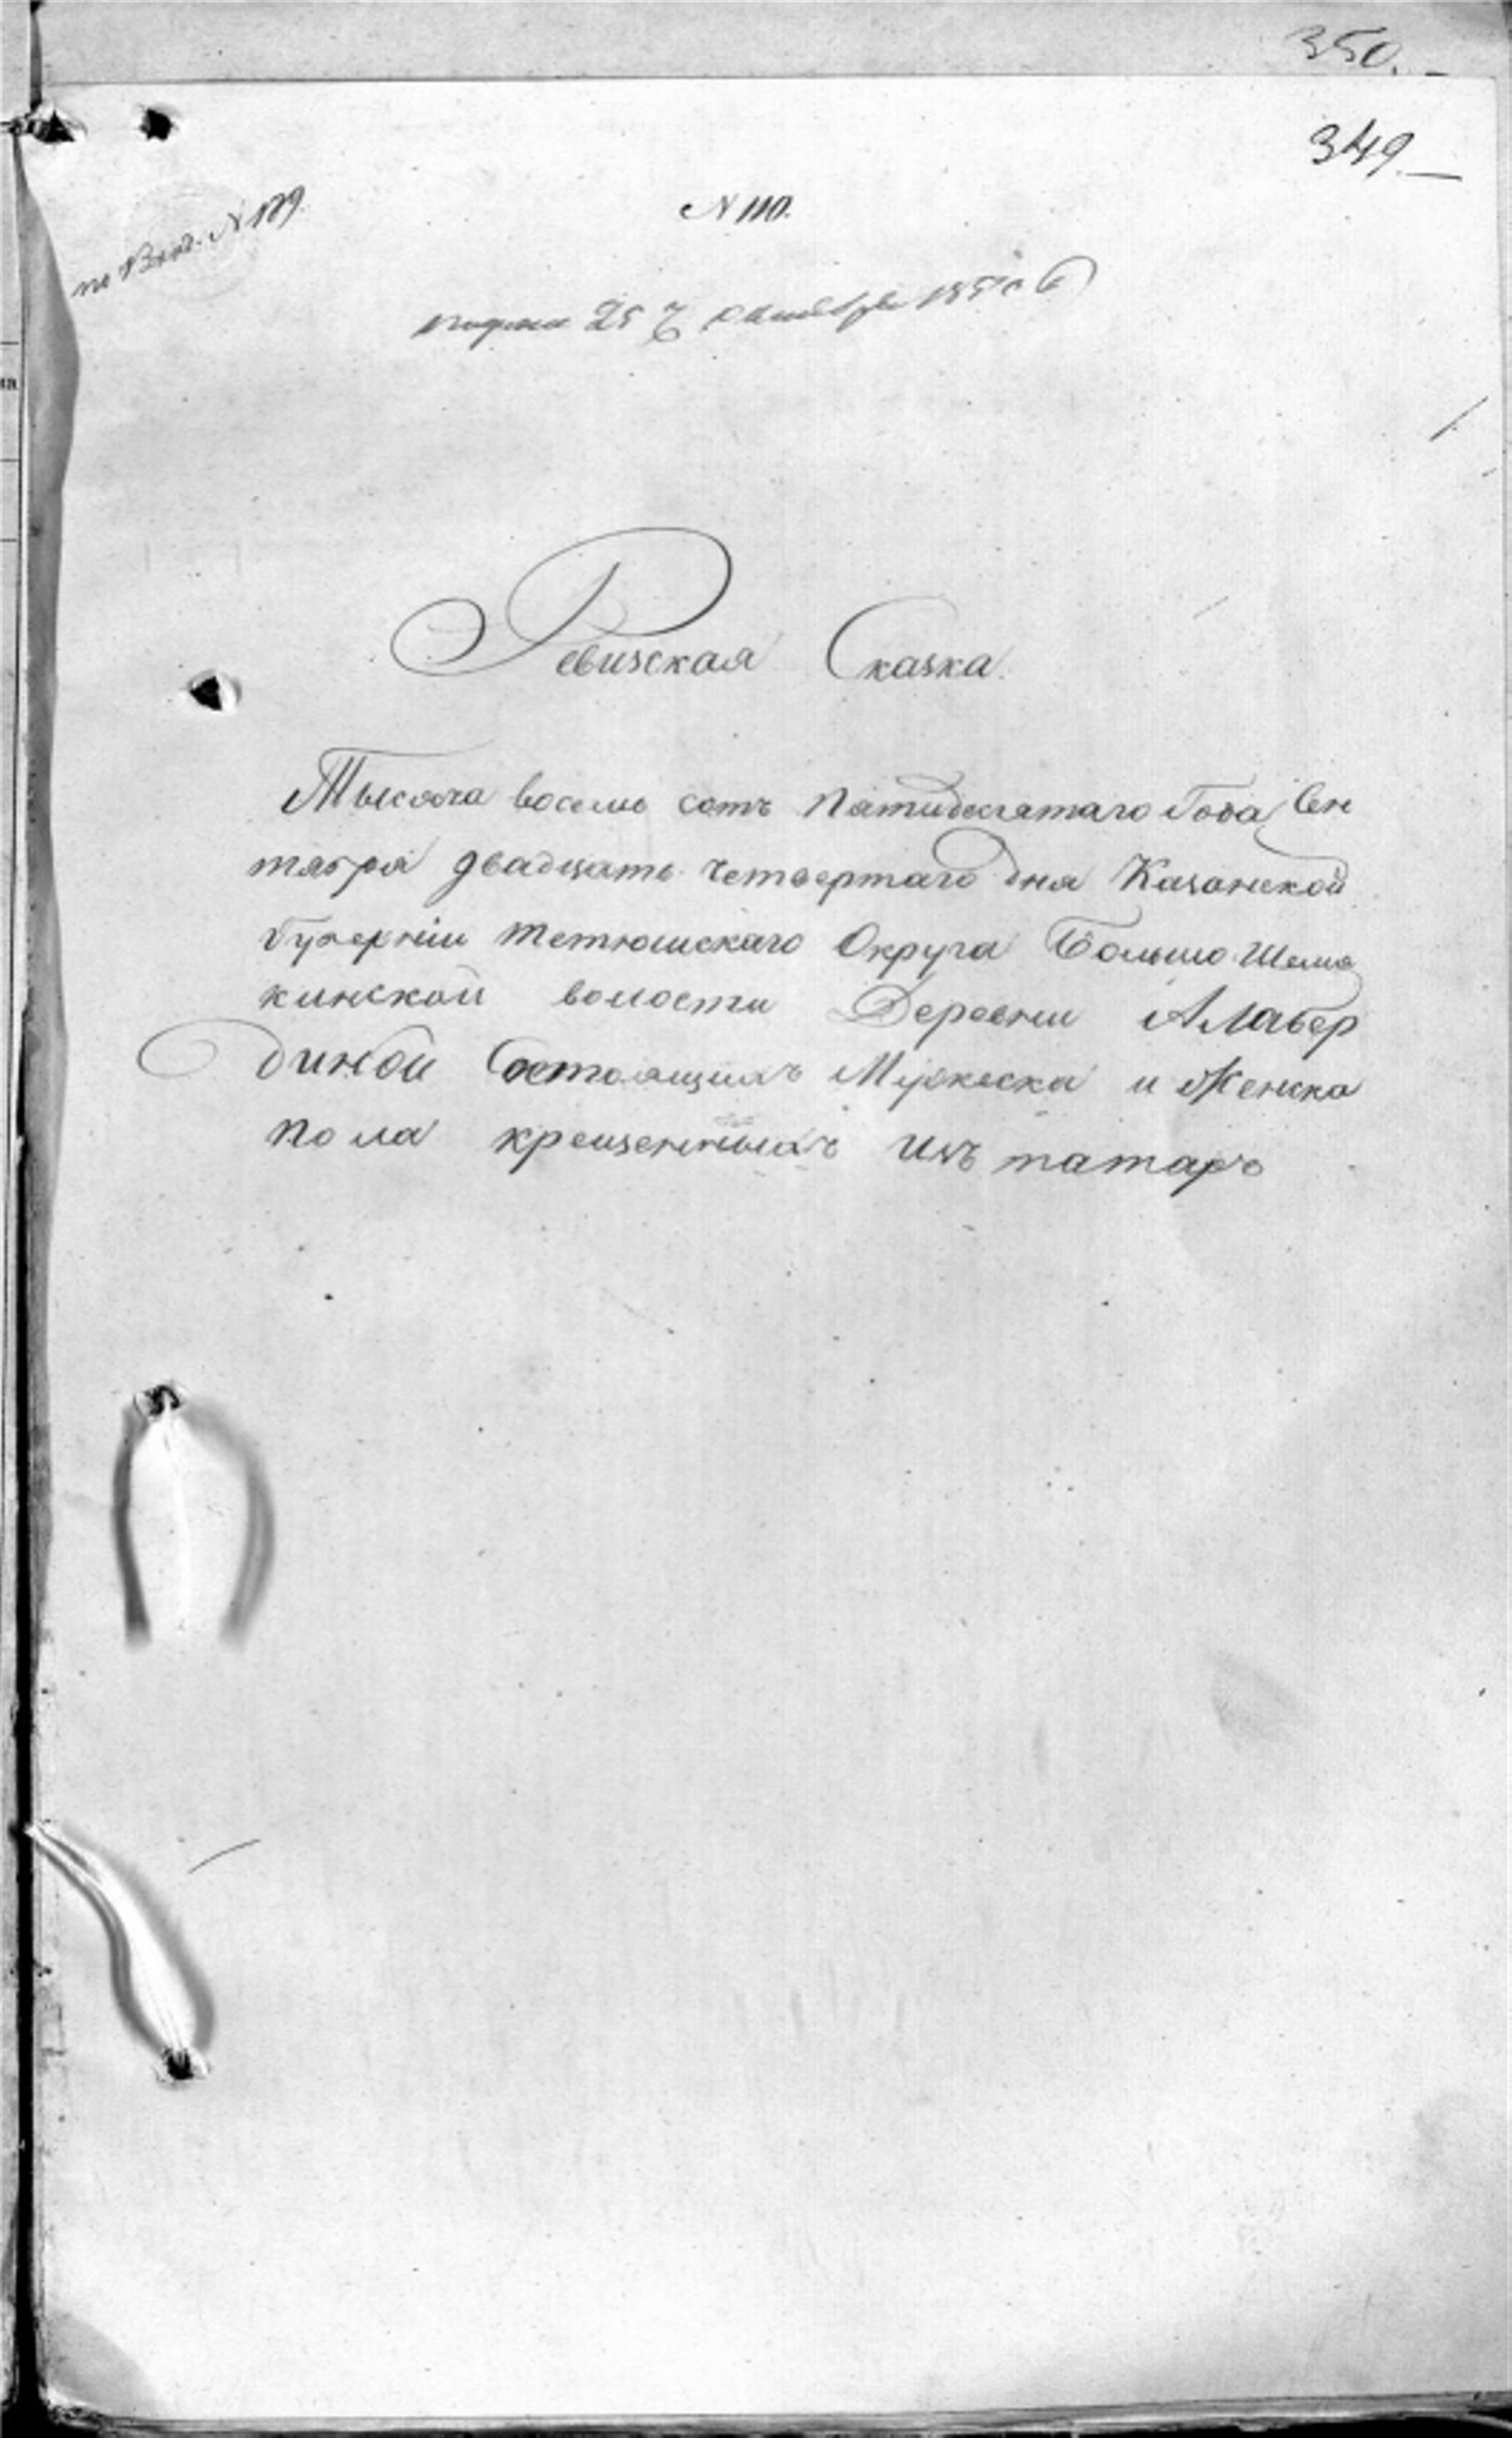 350.
349.
N 110.
по Вход. N 179
25 октября 1850
Ревизская Сказка.
Тысяча восемь сотъ пятидесятаго Года Сен
тября двадцать четвертаго дня Казанской
Губерніи тетюшскаго Округа Большо Шемя
кинской волости Деревни Алабер
диной Состоящихъ Мужеска и Женска
пола крещенныхъ изъ татаръ